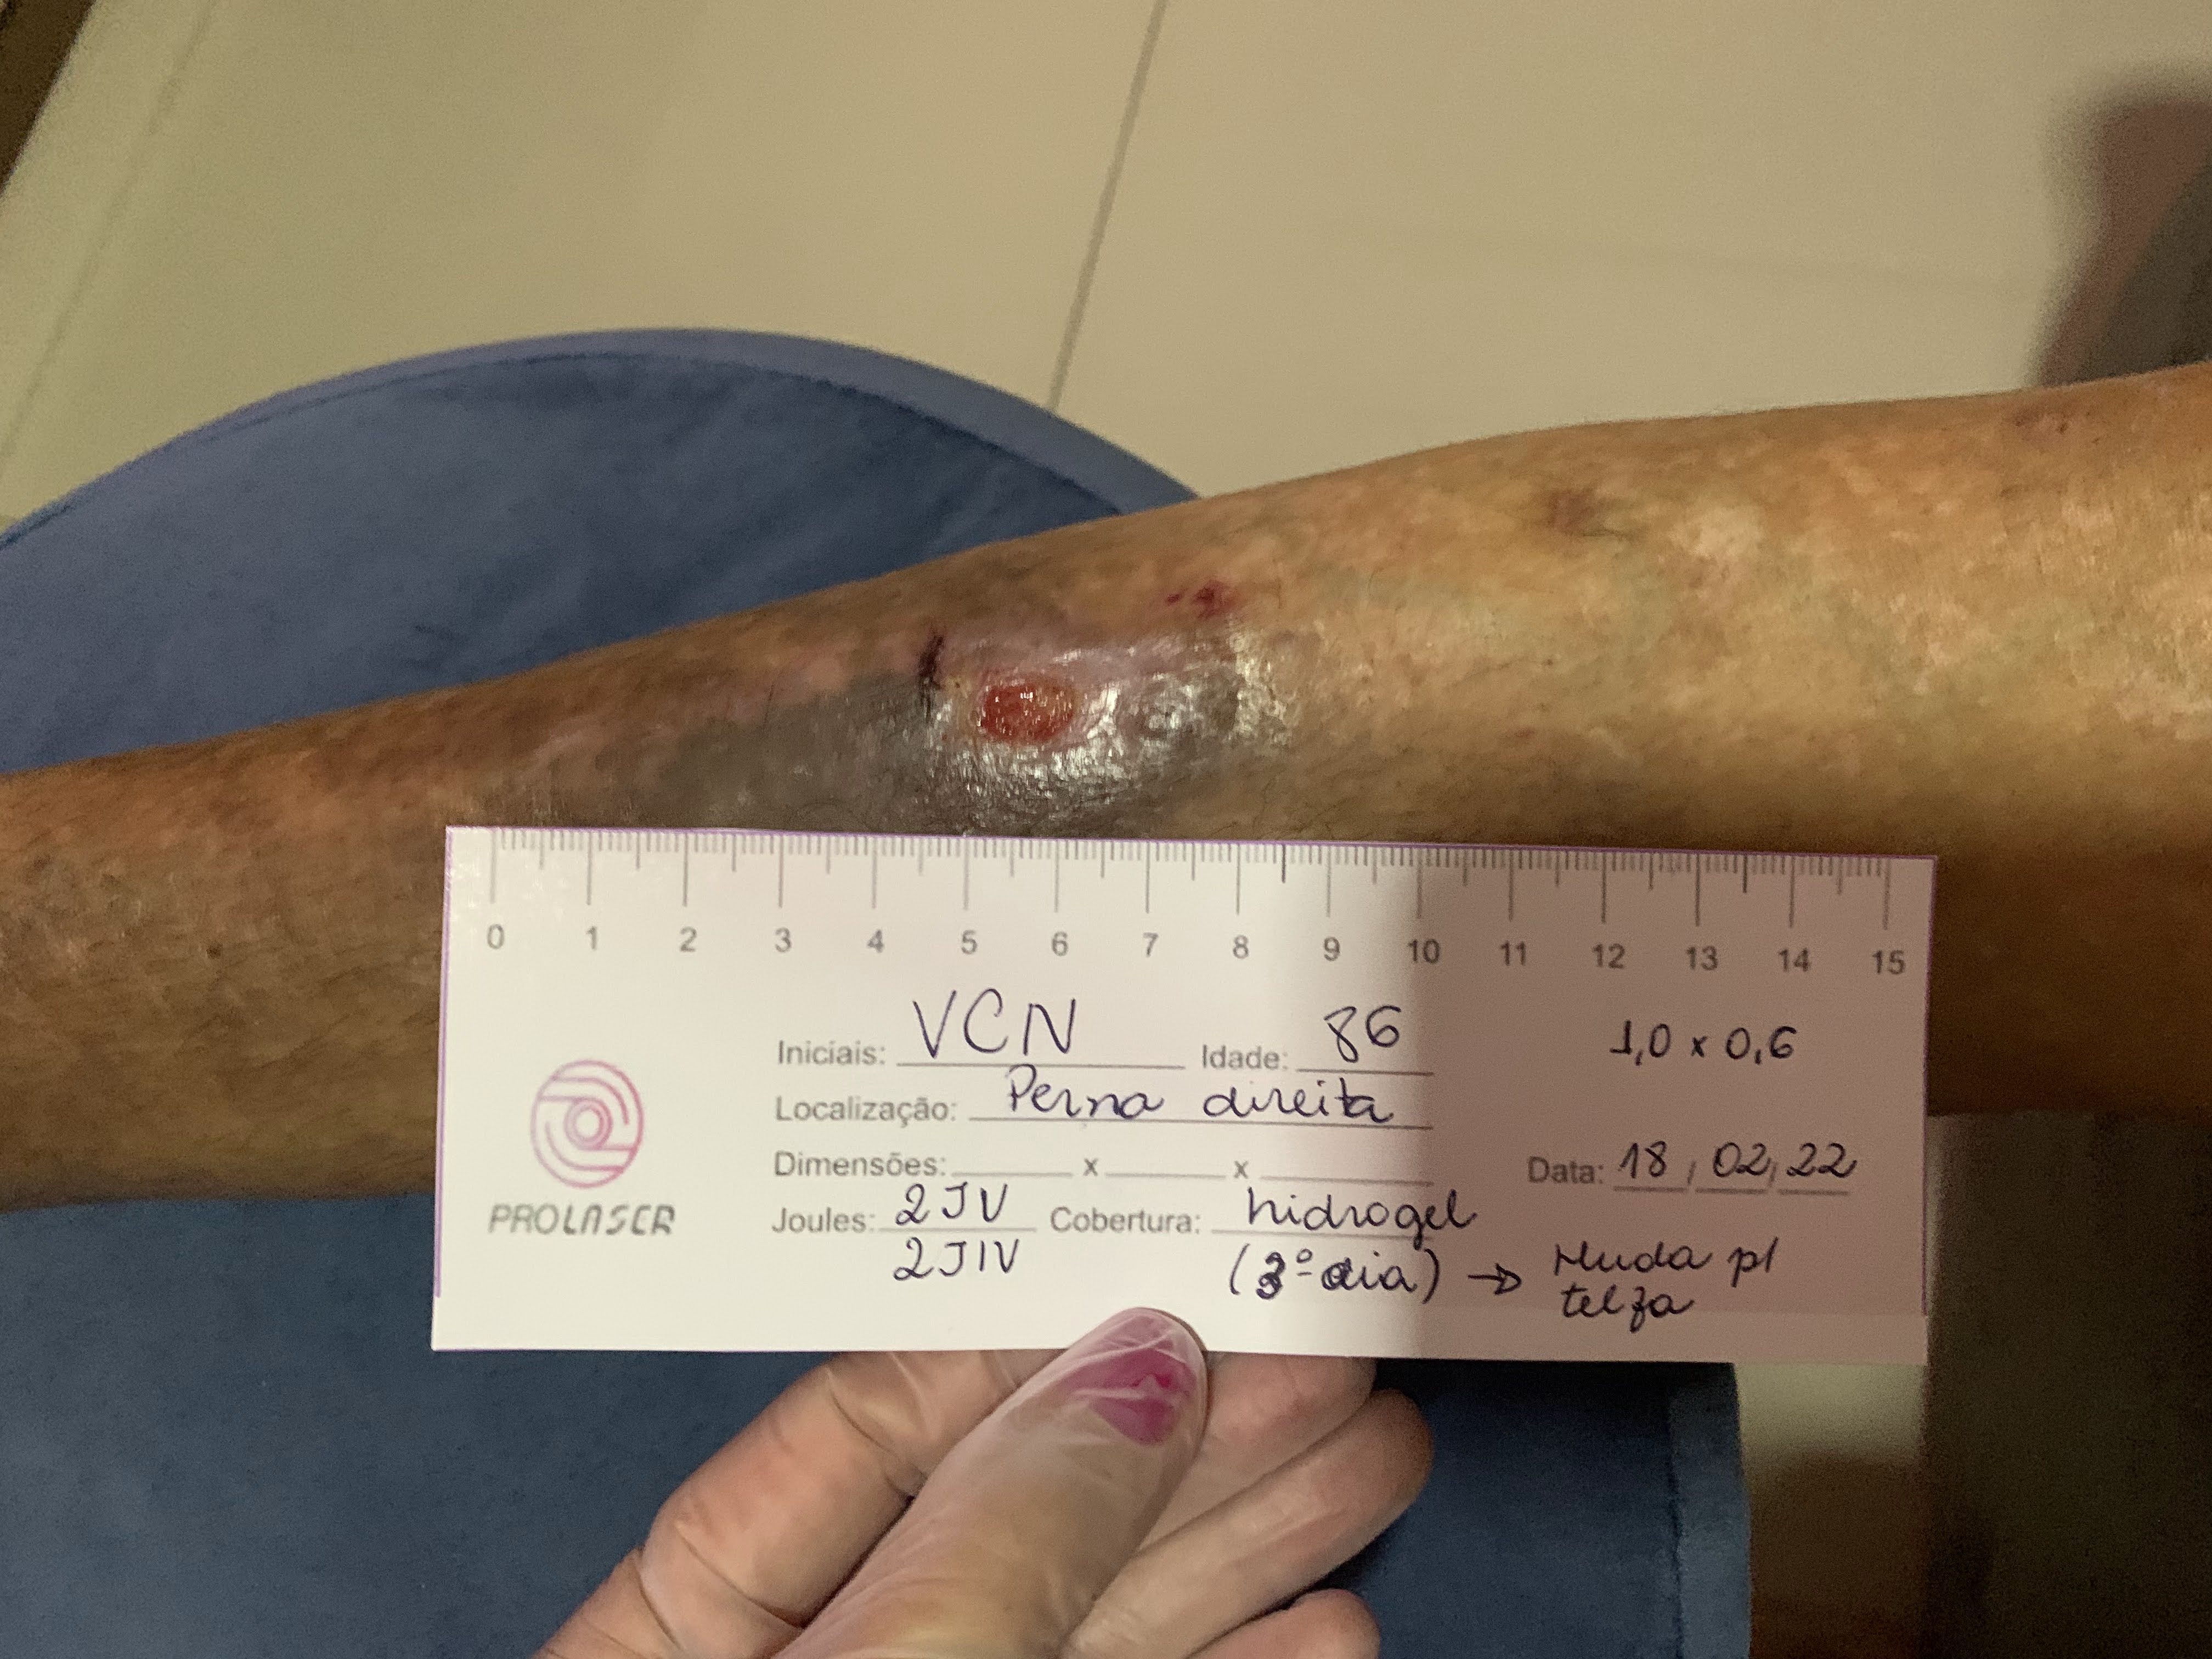 0 1 2 3 4 5 6 7 8 9 10 11 12 13 14 15
Iniciais: VCN Idade: 86 1,0 x 0,6
Localização: Perna direita
Dimensões: x x Data: 18/02/22
PROLASER Joules: 2JV Cobertura: hidrogel
2JIV (3º dia) → Muda p/
telfa